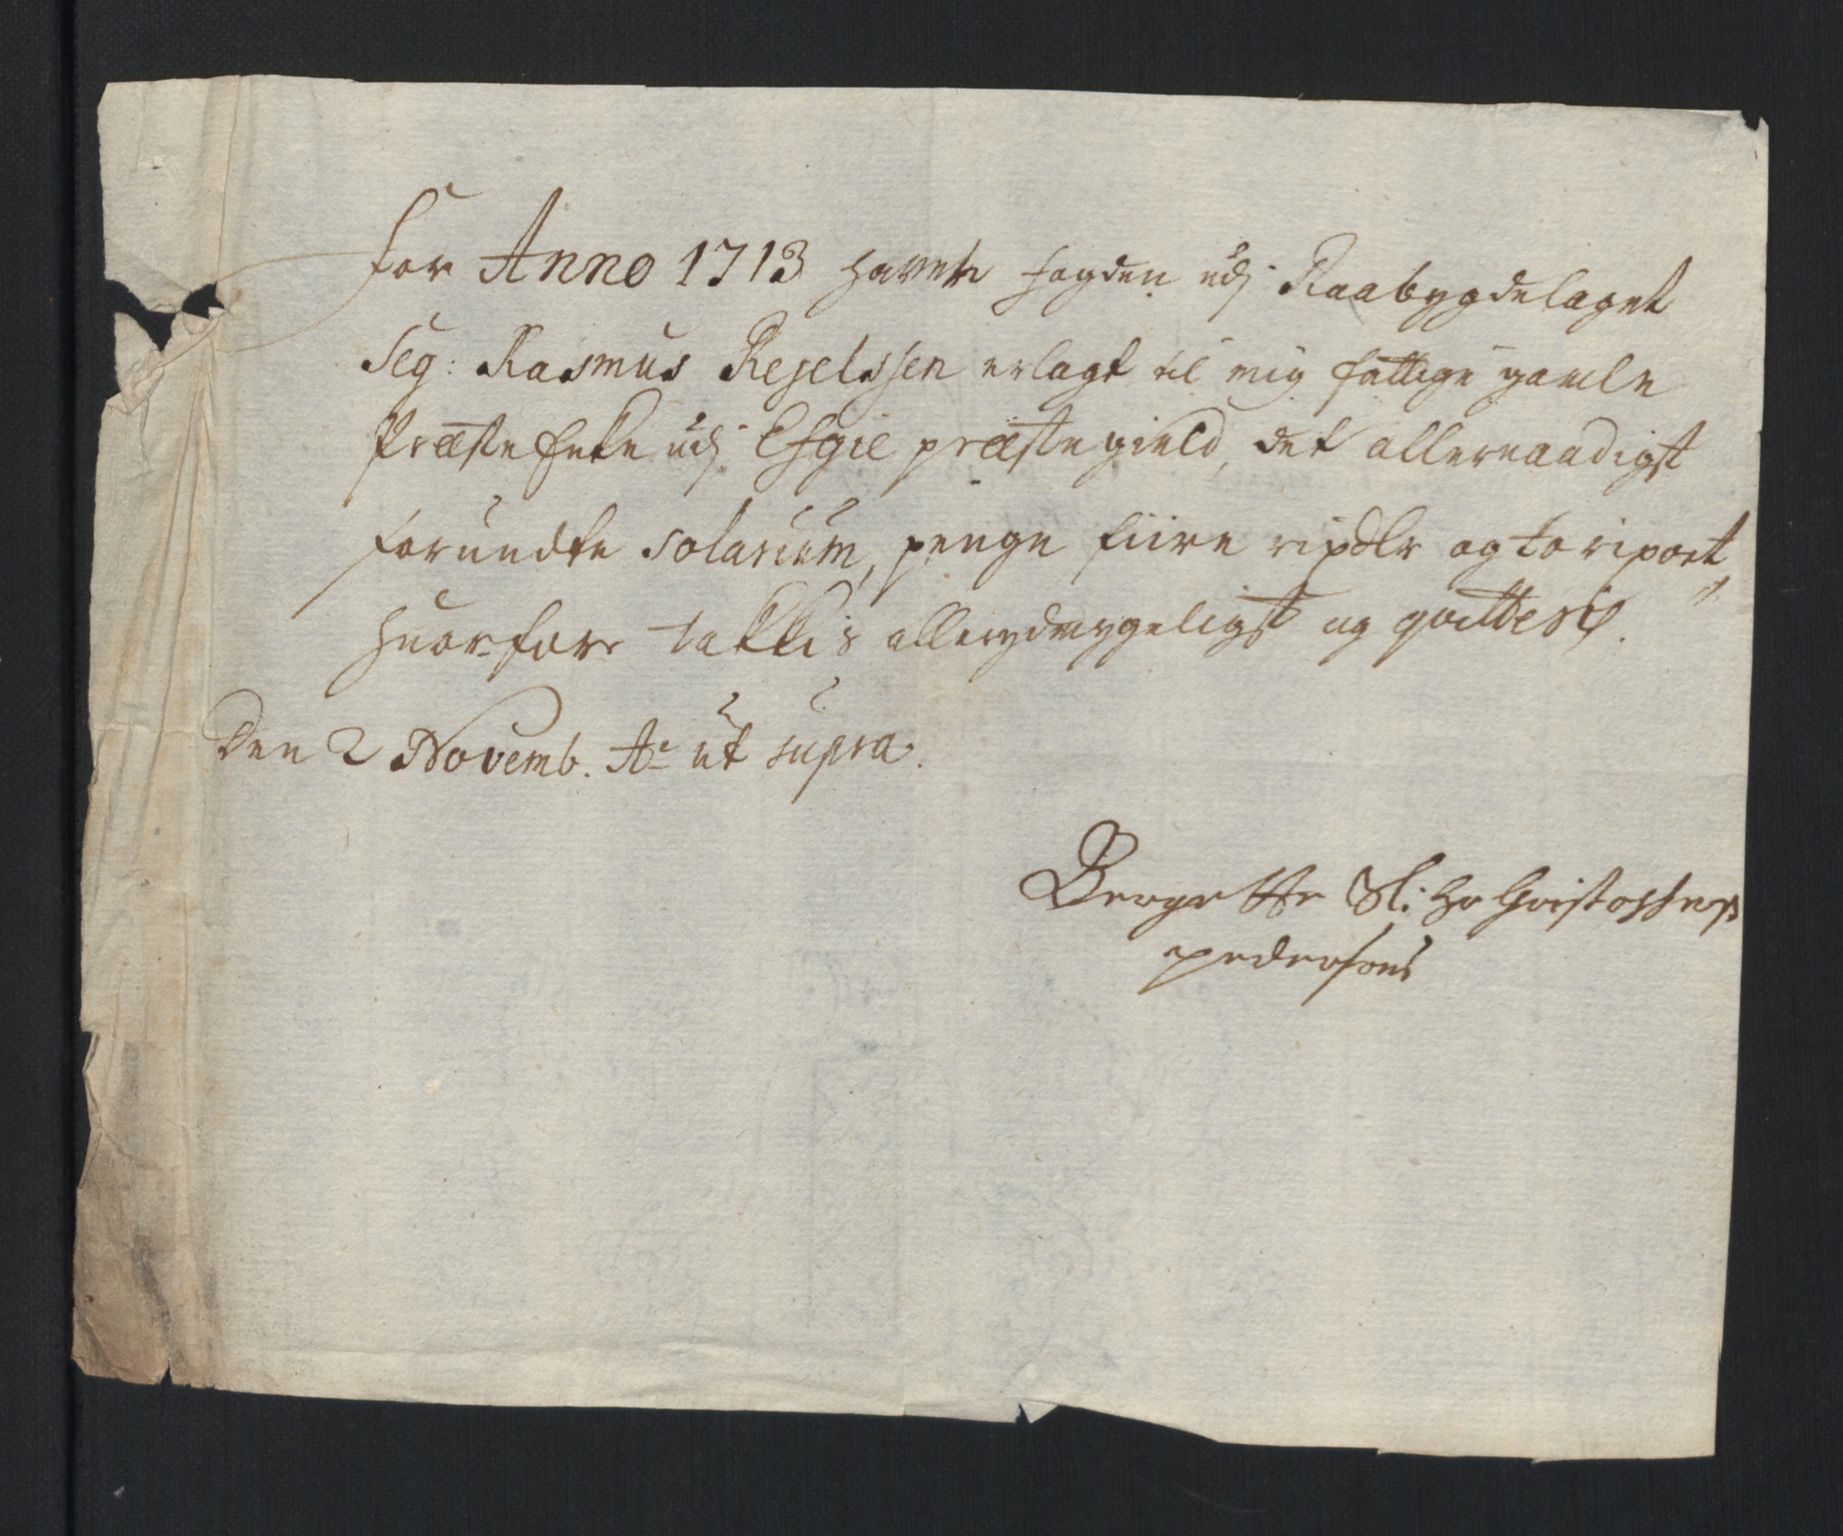 for Anno 1713 haver fogden udj Raabygdelaget
Seg: Rasmus Regelssen erlagt til mig fattige gamle
Præste Enke udj præstegield, det allernaadigst
forundte Solarium, penge fiire rixdlr og to rixort,
huorfore takkis allerydmygeligst og
Den 2 Novemb. Ao ut supra.
Sl: Hr Christoffers
pedersøns